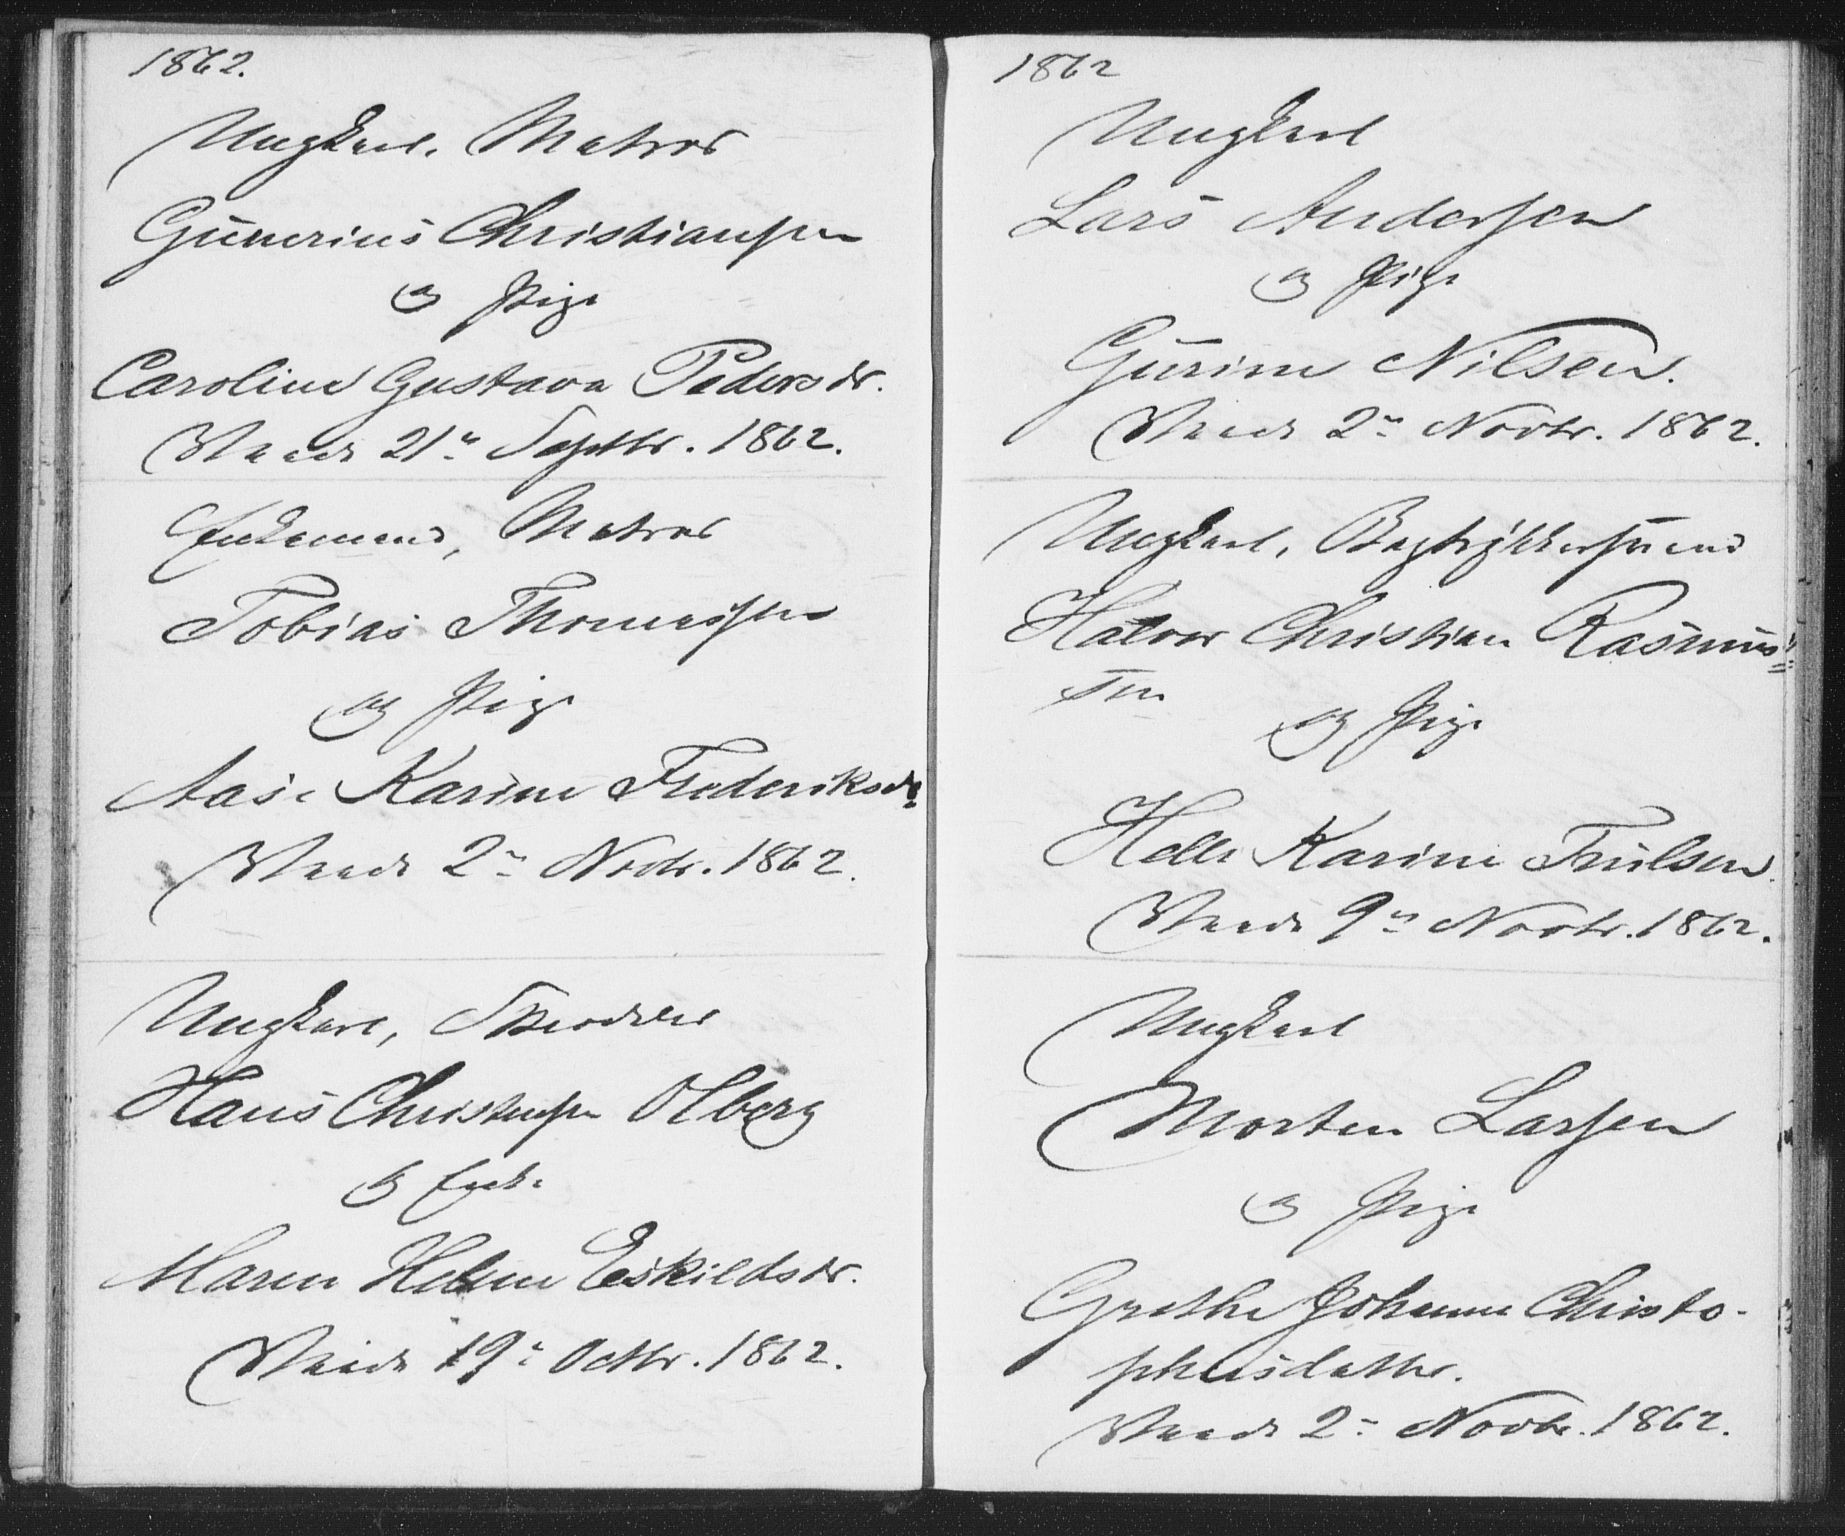 1862.
Ungkarl, Matros
Gunerius Christiansen
og Pige
Caroline Gustava Pedersdr.
Viede 21de Septbr. 1862.
Enkemand, Matros
Tobias Thomassen
og Pige
Aase Karine Frederiksdr.
Viede 2den Novbr. 1862.
Ungkarl,
Hans Christensen Olberg
og Enke
Maren Helene Eskildsdr.
Viede 19de Octbr. 1862.
1862
Ungkarl
Lars Andersen
og Pige
Gurine Nilsen.
Viede 2den Novbr. 1862.
Ungkarl, Bogtrykkersvend
Halvor Christian Rasmus-
sen
og Pige
Helle Karine Trulsen.
Viede 9de Novbr. 1862.
Ungkarl
Morten Larsen
og Pige
Grethe Johanne Christo-
phersdatter.
Viede 2den Novbr. 1862.